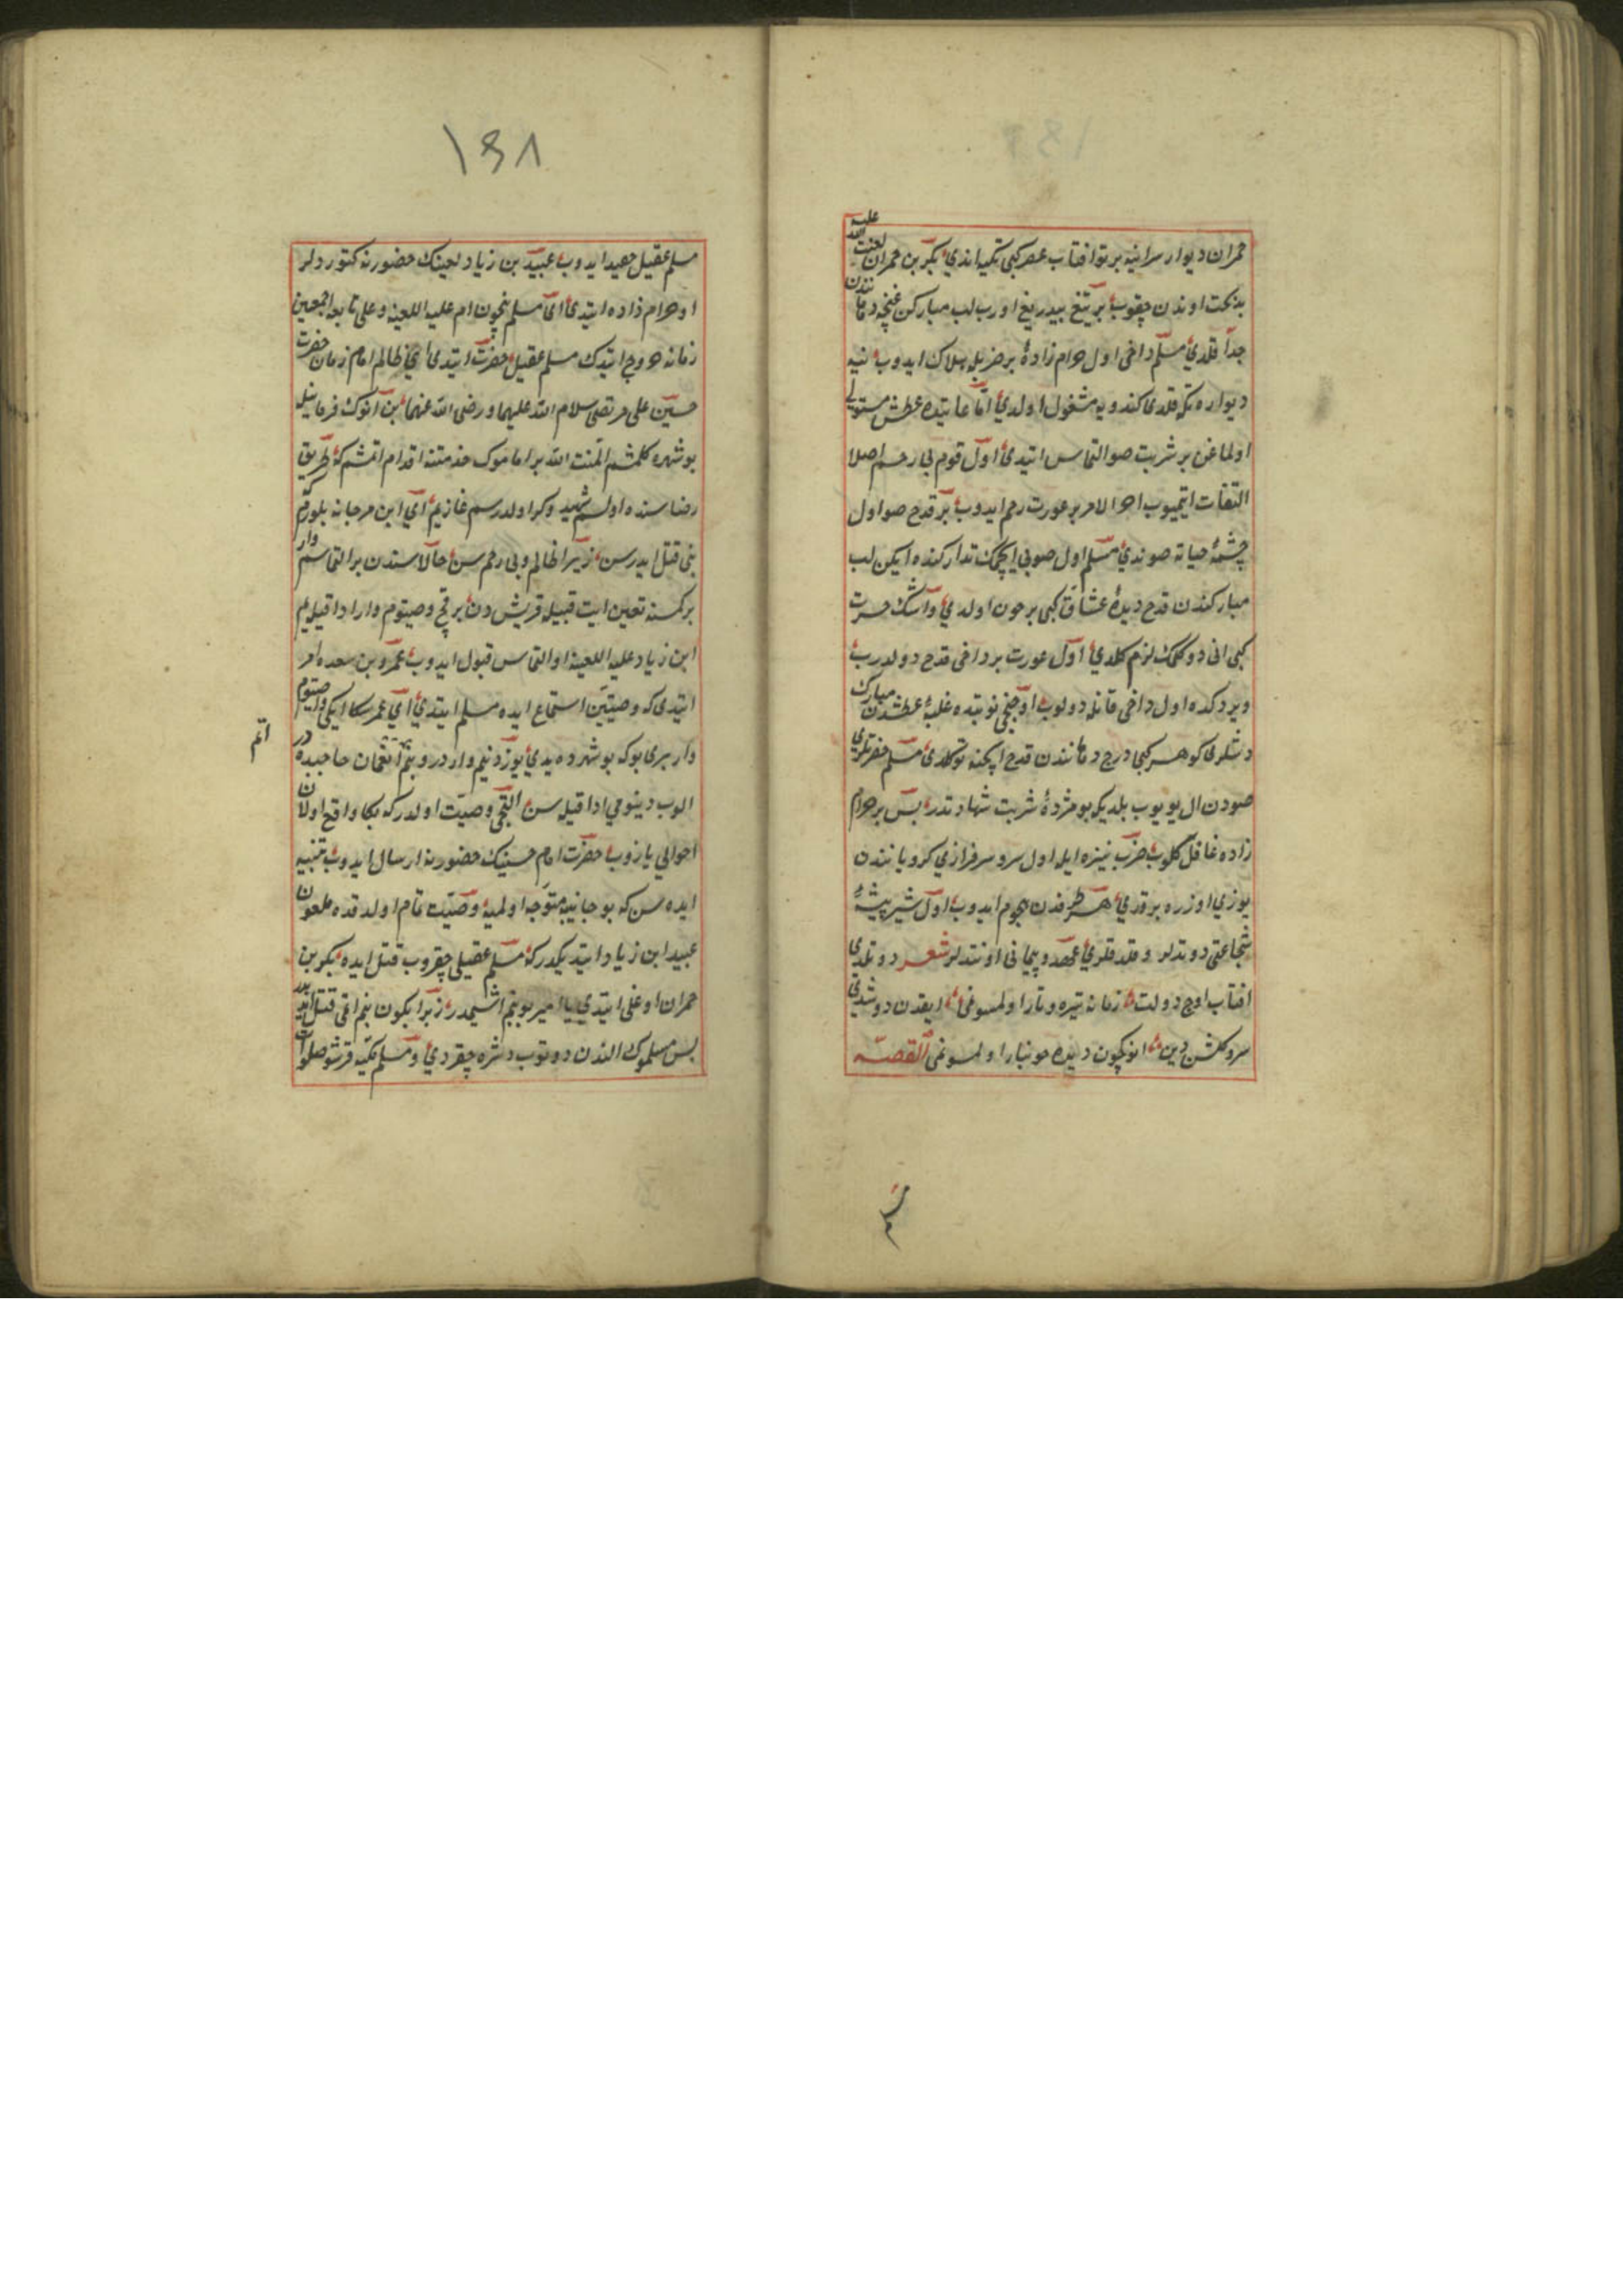 حمران ديوار سرانيه برتو افتاب عصر كبى تكيه اندي بكر بن حمران لعنت الله عليه
بدبخت اوندن چقوب بر تيغ بيدريغ اورب لب مباركن غنچه دهانندن
جدا قلدي مسلم داخى اول حرام زادۀ بر ضربله هلاك ايدوب ينه
ديواره تكيه قلدى كندويه مشغول اولدي اما غايتده عطش مستولى
اولماغن بر شربت صو التماس ايتدى اول قوم بى رحم اصلا
التفات ايتميوب اخر الامر بر عورت رحم ايدوب بر قدح صو اول
چشمۀ حياته صوندي مسلم اول صويى ايچمك تداركنده ايكن لب
مباركندن قدح ديدۀ عشاق كبى پر خون اولدي و اشك حسرت
كبى انى دوكمك لازم كلدي اول عورت بر داخى قدح دولدرب
ويردكده اول داخى قانله دولوب اوچنجى نوبتده غلبۀ عطشدن مبارك
دشلرى كوهر كبى درج دهانندن قدح ايچنه توكلدى مسلم حضرتلرى
صودن ال يويوب بلديكه بو مژدۀ شربت شهادتدر پس بر حرام
زاده غافل كلوب ضرب نيزه ايله اول سرو سرفرازي كرو يانندن
يوزي اوزره برقدي هر طرفدن هجوم ايدوب اول شير بيشۀ
شجاعتى دوتدلر و قلد قلري عهد و پيمانى اونتدلر شعر دوتلدى
افتاب اوج دولت زمانه تيره و تار اولمسونمى ايقدن دوشدي
سرو كلشن دين انوكچون ديده خونبار اولمسونمى القصه
مسلم
١٤٨
مسلم عقيل صيد ايدوب عبيد بن زياد لعينك حضورنه كتوردلر
او حرام زاده ايتدى اى مسلم نيچون امام عليه اللعنه و على تابعه اجمعين
زمانه خروج ايتدك مسلم عقيل حضرت ايتدى اي ظالم امام زمان حضرت
حسين على مرتضى سلام الله عليهما و رضى الله عنهما بن انوك فرمانيله
بو شهره كلمشم المنت الله بر اماموك خدمتنه اقدام اتمشم كه طريق
رضاسنده اولسم شهيد و كر اولدرسم غازيم اي ابن مرجانه بلورم كه
بنى قتل ايدرسن زيرا ظالم و بى رحم سن حالا سندن بر التماسم وار
بر كمسنه تعين ايت قبيله قريش دن بر قچ وصيتوم وار ادا قيله يم
ابن زياد عليه اللعنه او التماس قبول ايدوب عمرو بن سعده امر
ايتدى كه وصيتين استماع ايده مسلم ايتدي اي عمر سكا ايكى وصيتوم
وار برى بو كه بو شهرده يدي يوز دينم وار در و بنم اتم نعمان حاجبده در
اتم
الوب دينومي ادا قيله سن ايكنجى وصيت اولدر كه بكا واقع اولان
احوالى يازوب حضرت امام حسينك حضورينه ارسال ايدوب تنبيه
ايده سن كه بو جانبه متوجه اولميه وصيت تمام اولدقده ملعون
عبيد ابن زياد ايتديكدر كه مسلم عقيلى چقروب قتل ايده بكر بن
حمران اوغلى ايتدي يا امير بو بنم ايشمدر زيرا بكون بنم اتامى قتل ايدبدر
پس مسلموك الندن دوتوب دشره چقردي و مسلم مكيه قرشو صلوات